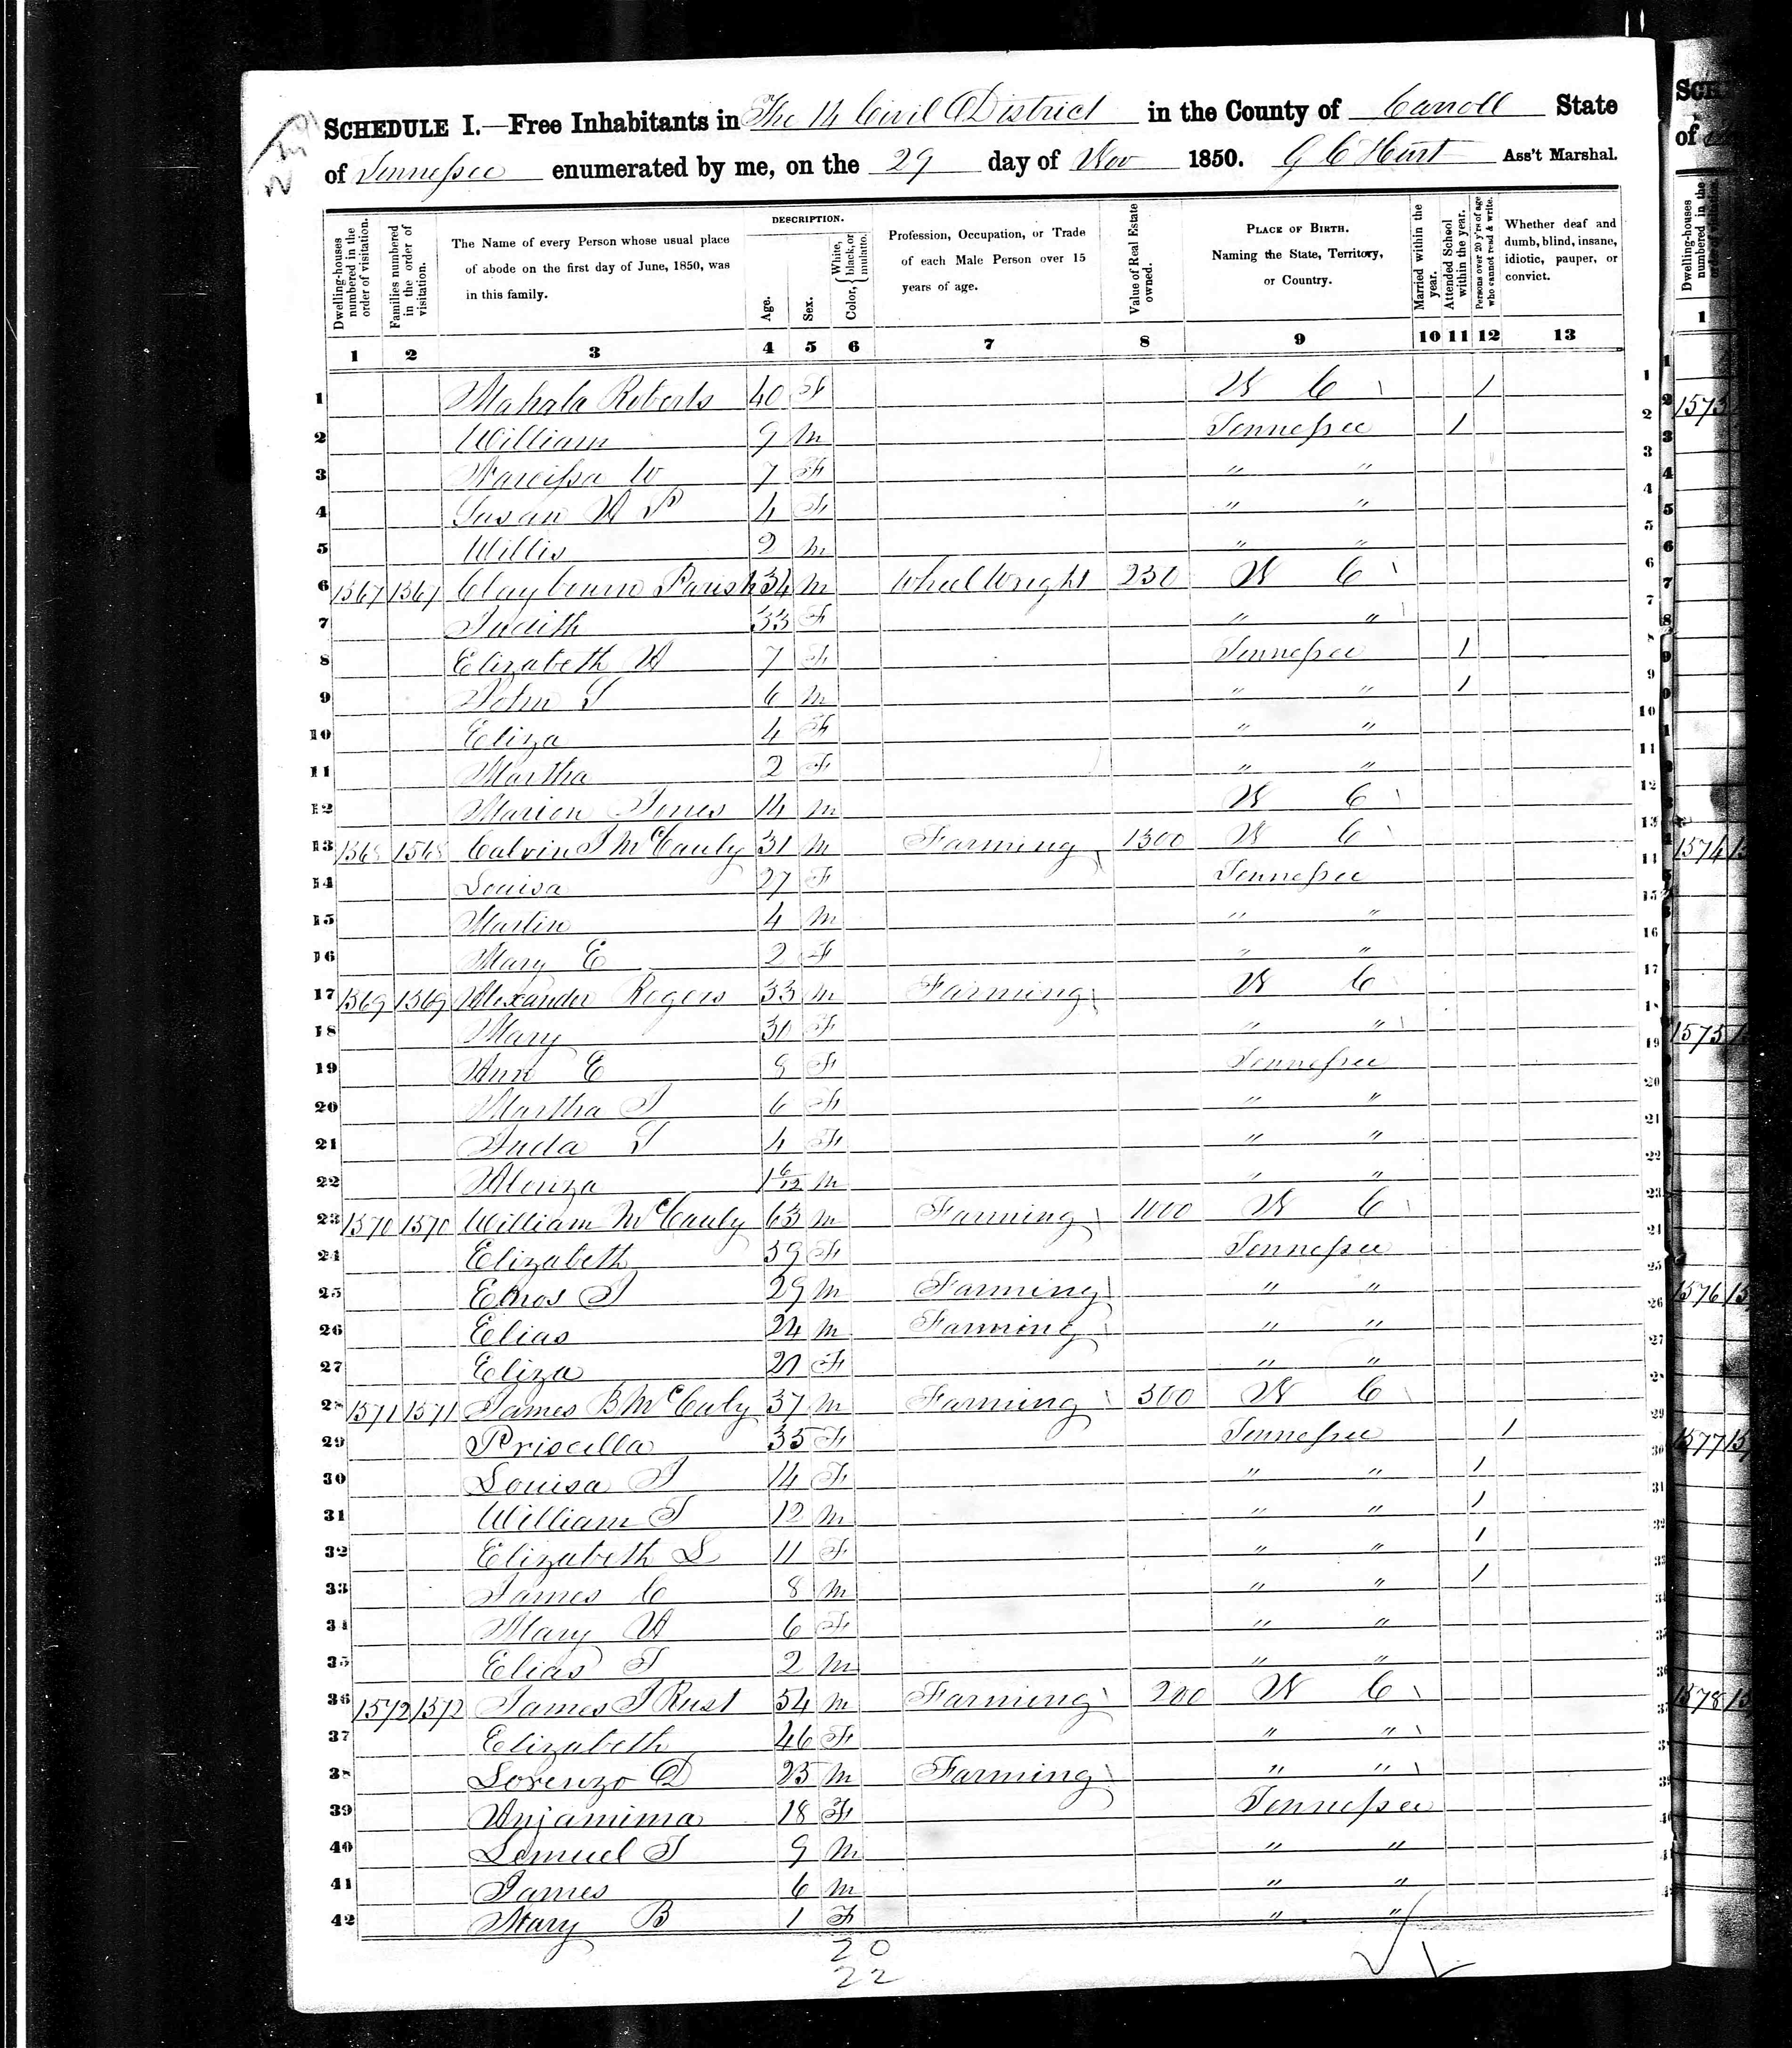 SCHEDULE I.—Free Inhabitants in The 14 Civil District in the County of Carroll State
of Tennessee enumerated by me, on the 29 day of Nov 1850. G C Hurt Ass't Marshal.
Dwelling-houses numbered in the order of visitation.
Families numbered in the order of visitation.
The Name of every Person whose usual place of abode on the first day of June, 1850, was in this family.
DESCRIPTION.
Age.
Sex.
Color, White, black, or mulatto.
Profession, Occupation, or Trade of each Male Person over 15 years of age.
Value of Real Estate owned.
PLACE OF BIRTH. Naming the State, Territory, or Country.
Married within the year.
Attended School within the year.
Persons over 20 y'rs of age who cannot read & write.
Whether deaf and dumb, blind, insane, idiotic, pauper, or convict.
1 2 3 4 5 6 7 8 9 10 11 12 13
1 Mahala Roberts 40 F N C 1 1
2 William 9 m Tennessee 1 2
3 Narcissa W 7 F " " 3
4 Susan A P 4 F " " 4
5 Willis 2 m " " 5
6 1567 1567 Claybourn Parish 34 m Wheel Wright 250 N C 6
7 Judith 33 F " " 7
8 Elizabeth A 7 F Tennessee 1 8
9 John S 6 m " " 1 9
10 Eliza 4 F " " 10
11 Martha 2 F " " 11
12 Marion Jones 14 m N C 12
13 1568 1568 Calvin J McCauly 31 m Farming 1300 N C 13
14 Louisa 27 F Tennessee 14
15 Martin 4 m " " 15
16 Mary E 2 F " " 16
17 1569 1569 Alexander Rogers 33 m Farming N C 17
18 Mary 30 F " " 18
19 Ann E 8 F Tennessee 19
20 Martha J 6 F " " 20
21 Juda T 4 F " " 21
22 Alonza 1 6/12 m " " 22
23 1570 1570 William McCauly 63 m Farming 1000 N C 23
24 Elizabeth 39 F Tennessee 24
25 Enos J 29 m Farming " " 25
26 Elias 24 m Farming " " 26
27 Eliza 21 F " " 27
28 1571 1571 James B McCauly 37 m Farming 300 N C 28
29 Priscilla 35 F Tennessee 1 29
30 Louisa J 14 F " " 1 30
31 William J 12 m " " 1 31
32 Elizabeth L 11 F " " 1 32
33 James C 8 m " " 1 33
34 Mary A 6 F " "
35 Elias J 2 m " "
36 1572 1572 James J Rust 54 m Farming 200 N C
37 Elizabeth 46 F " "
38 Lorenzo D 23 m Farming " "
39 Anjamima 18 F Tennessee
40 Lemuel J 9 m " "
41 James 6 m " "
42 Mary B 1 F " "
20
22
1573
1574
1575
1576
1577
1578